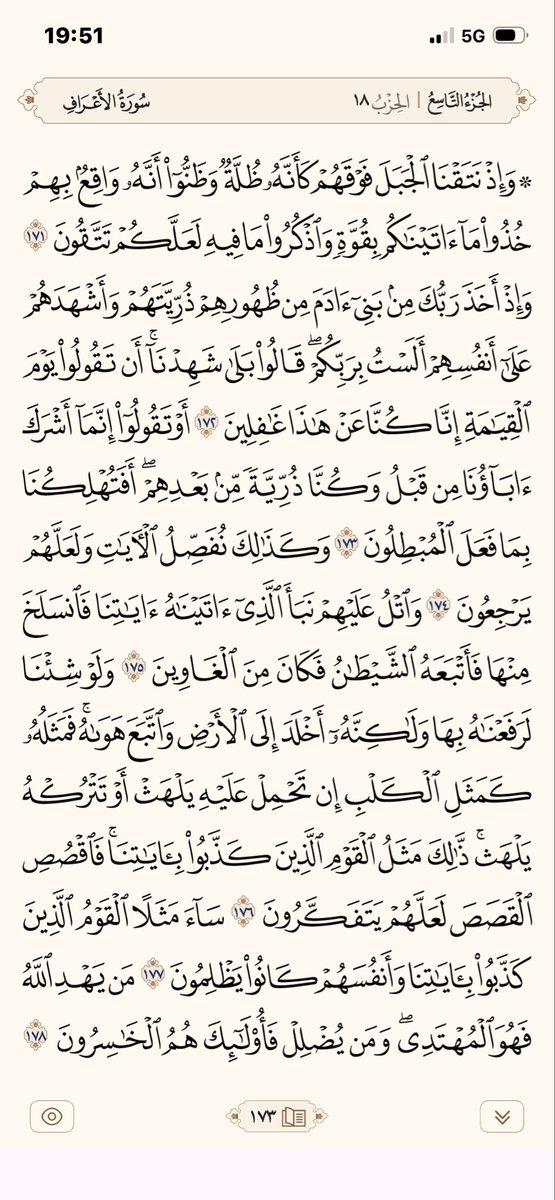 19:51 5G
الجُزْءُ التَّاسِعُ | الحِزْبُ ١٨ سُورَةُ الأَعْرَافِ
۞ وَإِذْ نَتَقْنَا ٱلْجَبَلَ فَوْقَهُمْ كَأَنَّهُۥ ظُلَّةٌ وَظَنُّوٓا۟ أَنَّهُۥ وَاقِعٌۢ بِهِمْ
خُذُوا۟ مَآ ءَاتَيْنَـٰكُم بِقُوَّةٍ وَٱذْكُرُوا۟ مَا فِيهِ لَعَلَّكُمْ تَتَّقُونَ ١٧١
وَإِذْ أَخَذَ رَبُّكَ مِنۢ بَنِىٓ ءَادَمَ مِن ظُهُورِهِمْ ذُرِّيَّتَهُمْ وَأَشْهَدَهُمْ
عَلَىٰٓ أَنفُسِهِمْ أَلَسْتُ بِرَبِّكُمْ ۖ قَالُوا۟ بَلَىٰ شَهِدْنَآ ۚ أَن تَقُولُوا۟ يَوْمَ
ٱلْقِيَـٰمَةِ إِنَّا كُنَّا عَنْ هَـٰذَا غَـٰفِلِينَ ١٧٢ أَوْ تَقُولُوٓا۟ إِنَّمَآ أَشْرَكَ
ءَابَآؤُنَا مِن قَبْلُ وَكُنَّا ذُرِّيَّةً مِّنۢ بَعْدِهِمْ ۖ أَفَتُهْلِكُنَا
بِمَا فَعَلَ ٱلْمُبْطِلُونَ ١٧٣ وَكَذَٰلِكَ نُفَصِّلُ ٱلْـَٔايَـٰتِ وَلَعَلَّهُمْ
يَرْجِعُونَ ١٧٤ وَٱتْلُ عَلَيْهِمْ نَبَأَ ٱلَّذِىٓ ءَاتَيْنَـٰهُ ءَايَـٰتِنَا فَٱنسَلَخَ
مِنْهَا فَأَتْبَعَهُ ٱلشَّيْطَـٰنُ فَكَانَ مِنَ ٱلْغَاوِينَ ١٧٥ وَلَوْ شِئْنَا
لَرَفَعْنَـٰهُ بِهَا وَلَـٰكِنَّهُۥٓ أَخْلَدَ إِلَى ٱلْأَرْضِ وَٱتَّبَعَ هَوَىٰهُ ۚ فَمَثَلُهُۥ
كَمَثَلِ ٱلْكَلْبِ إِن تَحْمِلْ عَلَيْهِ يَلْهَثْ أَوْ تَتْرُكْهُ
يَلْهَث ۚ ذَّٰلِكَ مَثَلُ ٱلْقَوْمِ ٱلَّذِينَ كَذَّبُوا۟ بِـَٔايَـٰتِنَا ۚ فَٱقْصُصِ
ٱلْقَصَصَ لَعَلَّهُمْ يَتَفَكَّرُونَ ١٧٦ سَآءَ مَثَلًا ٱلْقَوْمُ ٱلَّذِينَ
كَذَّبُوا۟ بِـَٔايَـٰتِنَا وَأَنفُسَهُمْ كَانُوا۟ يَظْلِمُونَ ١٧٧ مَن يَهْدِ ٱللَّهُ
فَهُوَ ٱلْمُهْتَدِى ۖ وَمَن يُضْلِلْ فَأُو۟لَـٰٓئِكَ هُمُ ٱلْخَـٰسِرُونَ ١٧٨
١٧٣